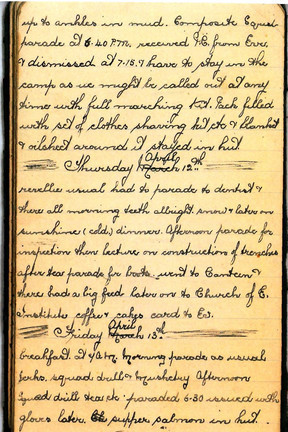 up to ankles in mud. Composite Equal
parade at 6.40 P.M. received P.C. from Eve,
& dismissed at 7-15. 7 have to stay in the
camp as we might be called out at any
time with full marching kit. Pack filled
with set of clothes shaving kit, etc & blanket
& oilsheet around. I stayed in hut
Thursday March April 12th
reveille usual had to parade to dentist &
there all morning teeth allright. snow & later on
sunshine (cold) dinner. Afternoon parade for
inspection then lecture on construction of trenches
after tea parade for boots. went to Canteen &
there had a big feed later on to Church of E.
Institute coffee & cakes card to Es.
Friday March April 13th
breakfast at morning parade as usual
jerks, squad drill & musketry Afternoon
squad drill tea etc paraded 6-30 issued with
gloves later supper salmon in hut.